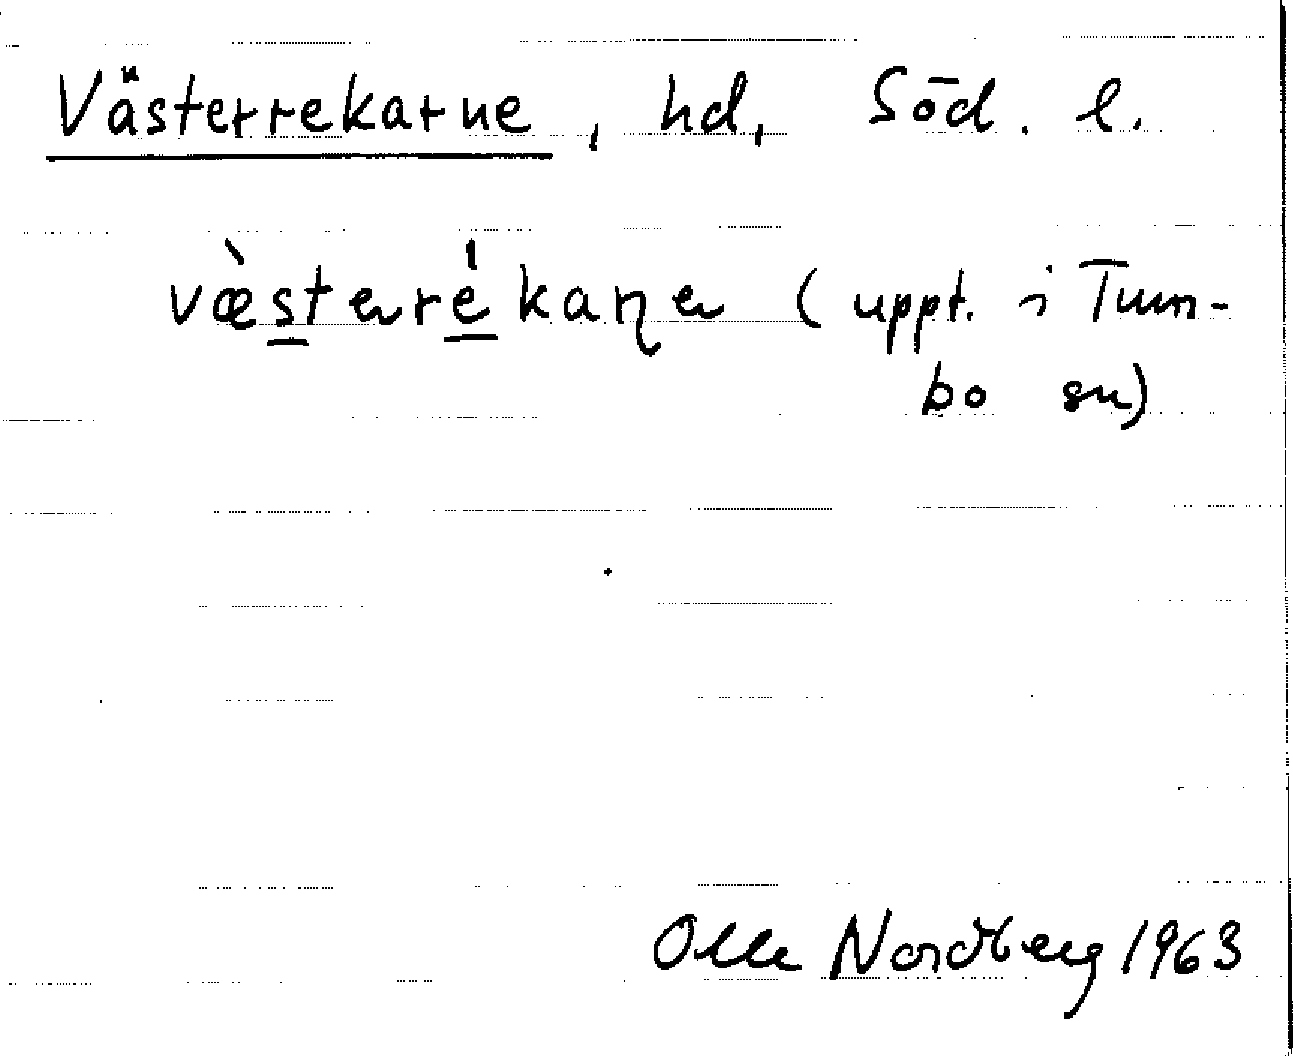 Västerrekarne, hd, Söd. l.
væ̀steré kaṇe (uppt. i Tum-
bo sn)
Olle Nordberg 1963